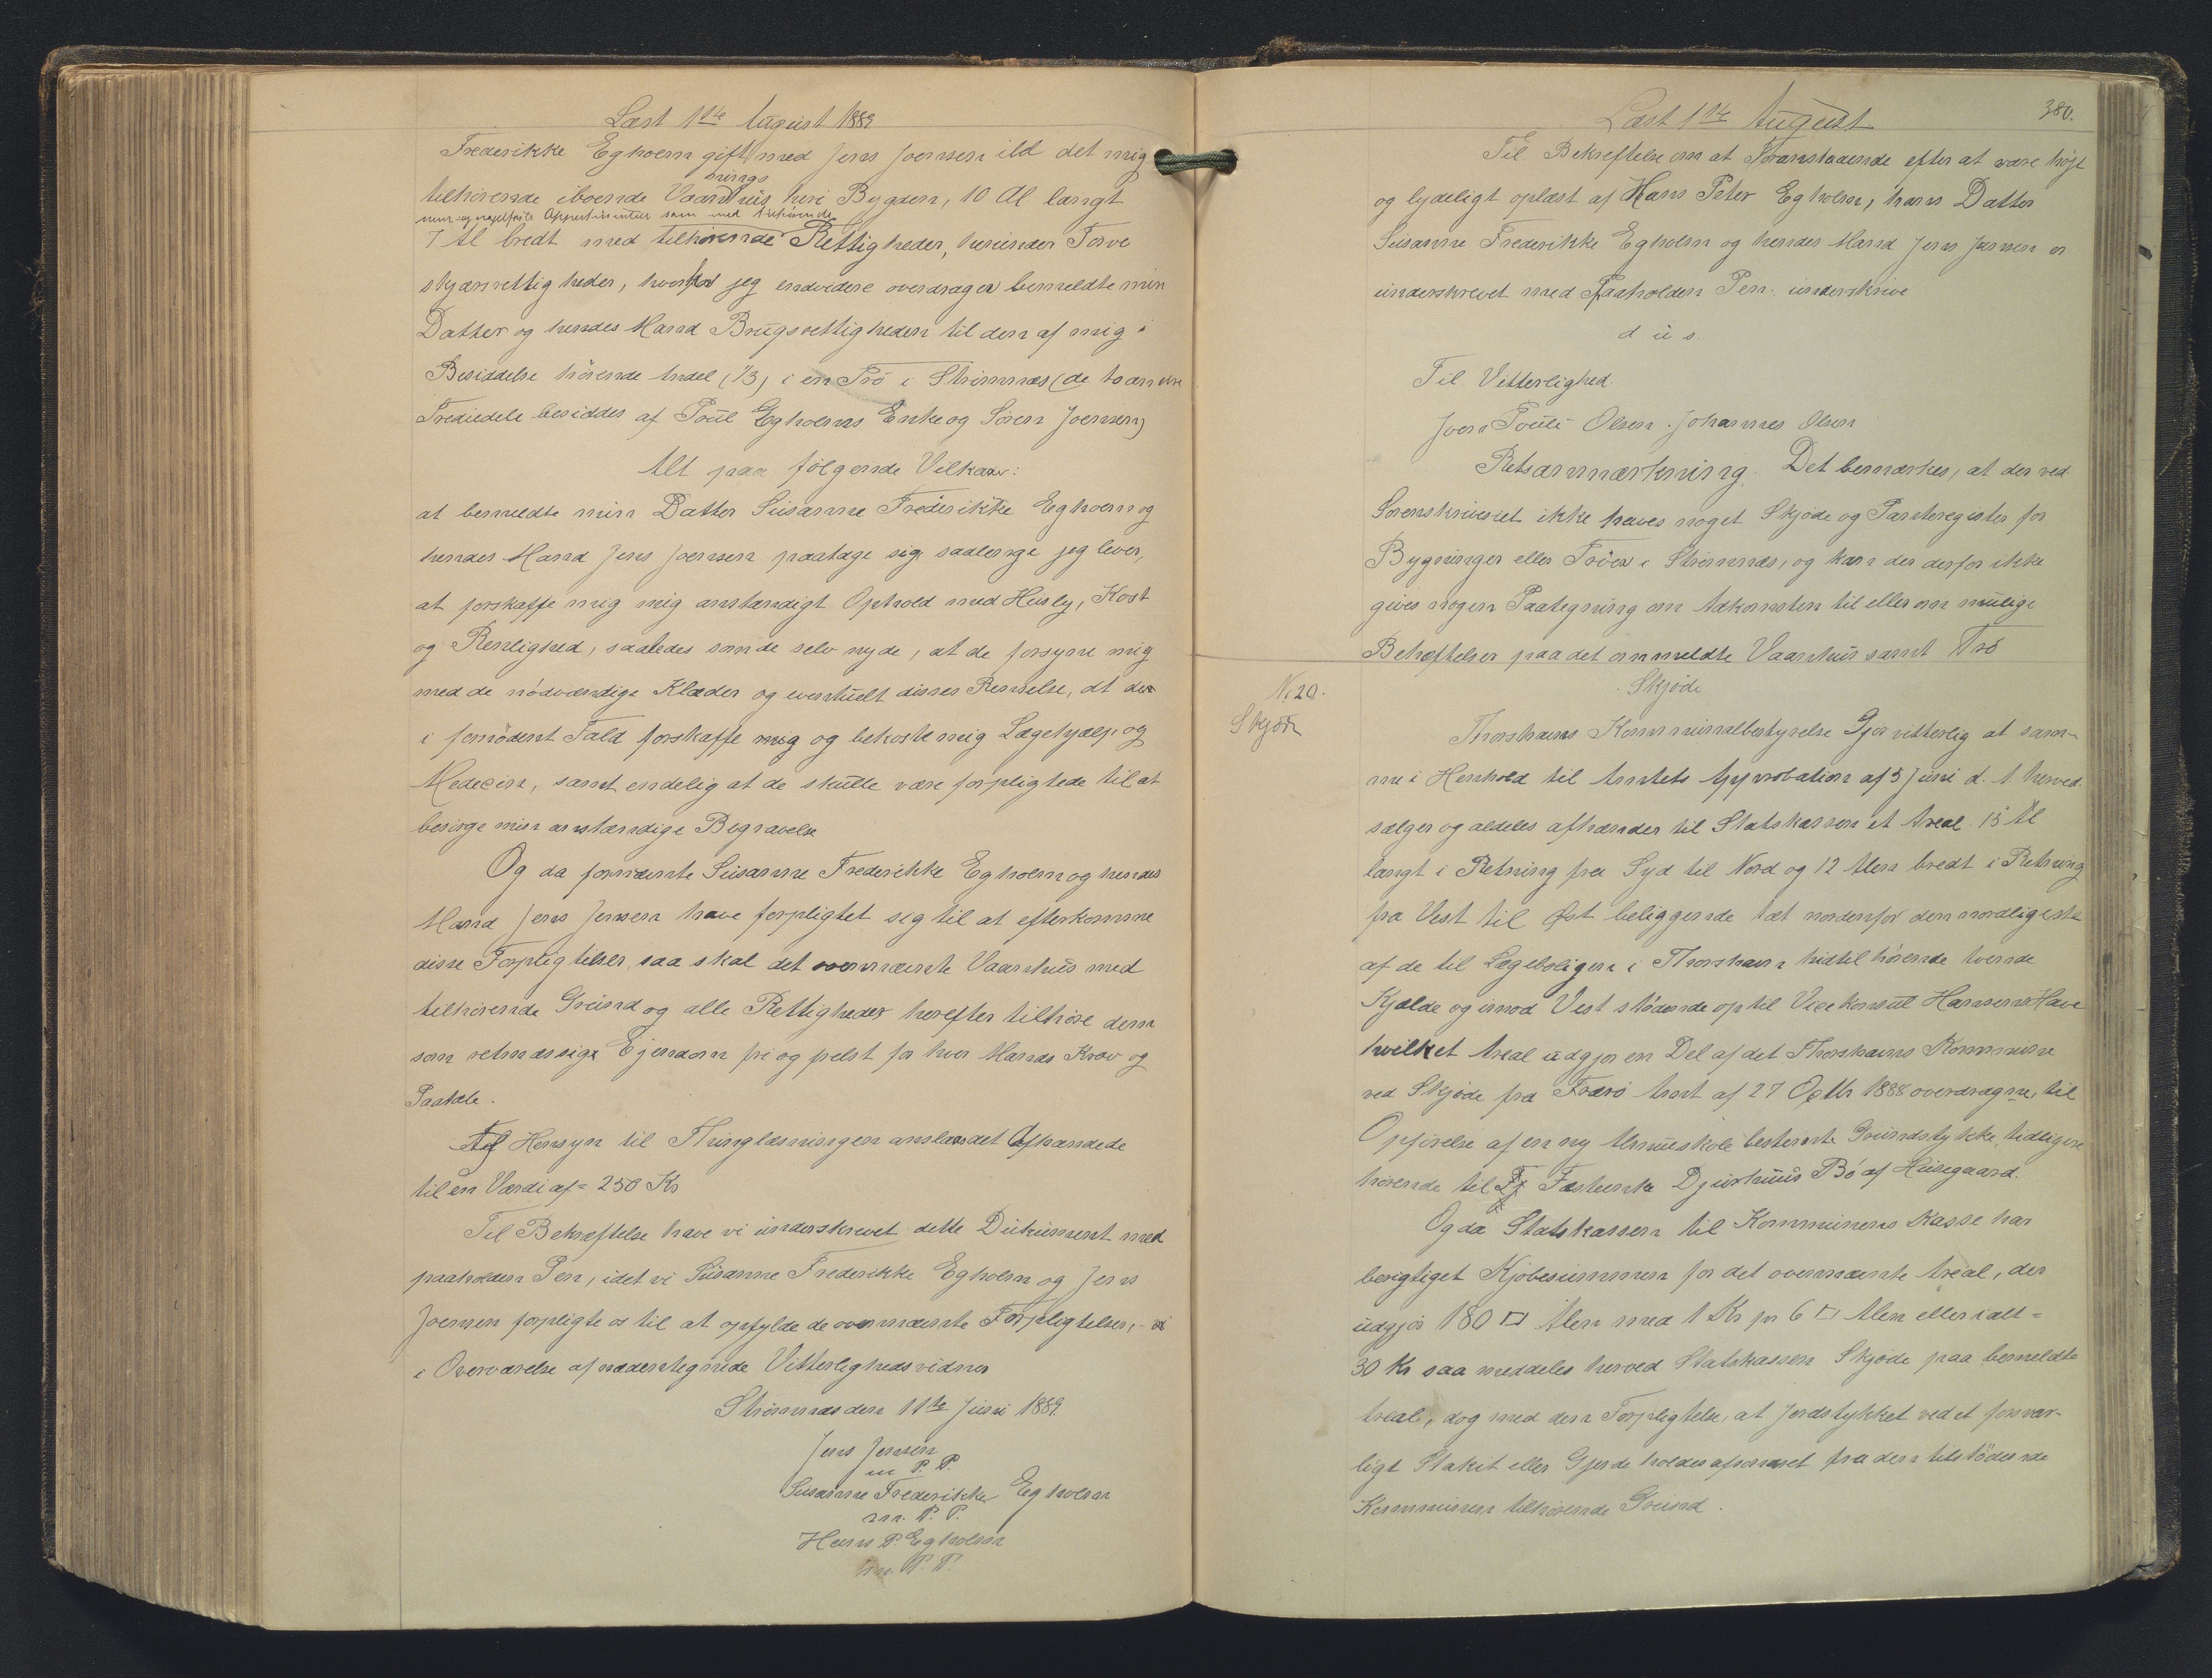 Læst 1ste August 1889
Frederikke Egholm gift med Jens Joensen ild det mig
nings
tilhørende iboende Vaanhuus heri Bygden, 10 Al langt
mur- og nagelfaste Appertinentier som med tilhørende
7 Al bredt med tilhørende Rettigheder, herunder Torve
skjærsrettigheder, hvorhos jeg endvidere overdrager bemeldte min
Datter og hendes Mand Brugsrettigheden til den af mig i
Besiddelse hörende Andel (1/3) i en Trö i Strömnæs (de to andre
Trediedele besiddes af Poul Egholms Enke og Sören Joensen)
Alt paa fölgende Vilkaar:
at bemeldte min Datter Susanne Frederikke Egholm og
hendes Mand Jens Joensen paatage sig saalænge jeg lever,
at forskaffe mig mig anstændigt Ophold med Husly, Kost
og Renlighed, saaledes som de selv nyde, at de forsyne mig
med de nödvændige Klæder og eventuelt disses Renselse, at de
i fornödent Fald forskaffe mig og bekoste mig Lægehjælp og
Medecin, samt endelig at de skulle være forpligtede til at
besörge min anstændige Begravelse
Og da fornævnte Susanne Frederikke Egholm og hendes
Mand Jens Jensen have forpligtet sig til at efterkomme
disse Forpligtelser, saa skal det ovennævnte Vaanhus med
tilhörende Grund og alle Rettigheder herefter tilhöre dem
som retmæssige Ejendom fri og frelst for hver Mands Krav og
Paatale.
Af Hensyn til Thinglæsningen ansloes det Afhændede
til en Værdi af = 250 Kr
Til Bekræftelse have vi underskrevet dette Dukument med
paaholden Pen, idet vi Susanne Frederikke Egholm og Jens
Joensen forpligte os til at opfylde de ovennævnte Forpligtelser, -
i Overværelse af nedentegnede Vitterlighedsvidner
Strömnæs den 11te Juni 1889.
Jens Jensen
m P. P.
Susanne Frederikke Egholm
m. P. P.
Hans P. Egholm
m. P. P.
Læst 1ste August
380.
Til Bekreftelse om at Foranstaaende efter at være höjt
og lydeligt oplæst af Hans Peter Egholm, hans Datter
Susanne Frederikke Egholm og hendes Mand Jens Jansen er
underskrevet med Paaholden Pen. underskrive
d u s.
Til Vitterlighed.
Joen Pouli Olsen. Johannes Olsen
Retsanmærkning. Det bemærkes, at der ved
Sorenskriveriet ikke haves noget Skjöde og Panteregister for
Bygninger eller Tröer i Strömnæs, og kan der derfor ikke
gives nogen Paategning om Adkomsten til eller om mulige
Behæftelser paa det ommeldte Vaanhus samt Trö
Skjöde
N. 20.
Skjöde
Thorshavns Kommunalbestyrelse Gjör vitterlig at sam-
me i Henhold til Amtets Approbation af 3 Juni d. A. herved
sælger og aldeles afhænder til Statskassen et Areal 15 Al
langt i Retning fra Syd til Nord og 12 Alen bredt i Retning
fra Vest til Øst beliggende tæt nordenfor den nordligeste
af de til Lægeboligen i Thorshavn hidtil hörende tvende
Kjælde og imod Vest stödende op til Vicekonsul Hansens Have
hvilket Areal udgjör en Del af det Thorshavns Kommune
ved Skjöde fra Færö Amt af 27 Octbr 1888 overdragne, til
Opförelse af en ny Almueskole bestemte Grundstykke, tidligere
hörende til Fæsteenke Djurhuus Bö af Husegaard.
Og da Statskassen til Kommunens Kasse har
berigtiget Kjöbesummen for det ovennævnte Areal, der
udgjör 180 □ Alen med 1 Kr pr 6 □ Alen eller ialt =
30 Kr saa meddeles herved Statskassen Skjöde paa bemeldte
Areal, dog med den Forpligtelse, at Jordstykket ved et forsvar-
ligt Stakit eller Gjerde holdes afsondret fra den tilstödende
Kommunen tilhörende Grund.